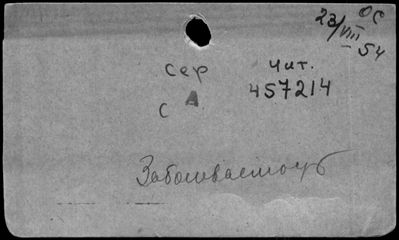 ОС
23/VIII
54
сер
Чит.
С А
457214
Заболеваемость